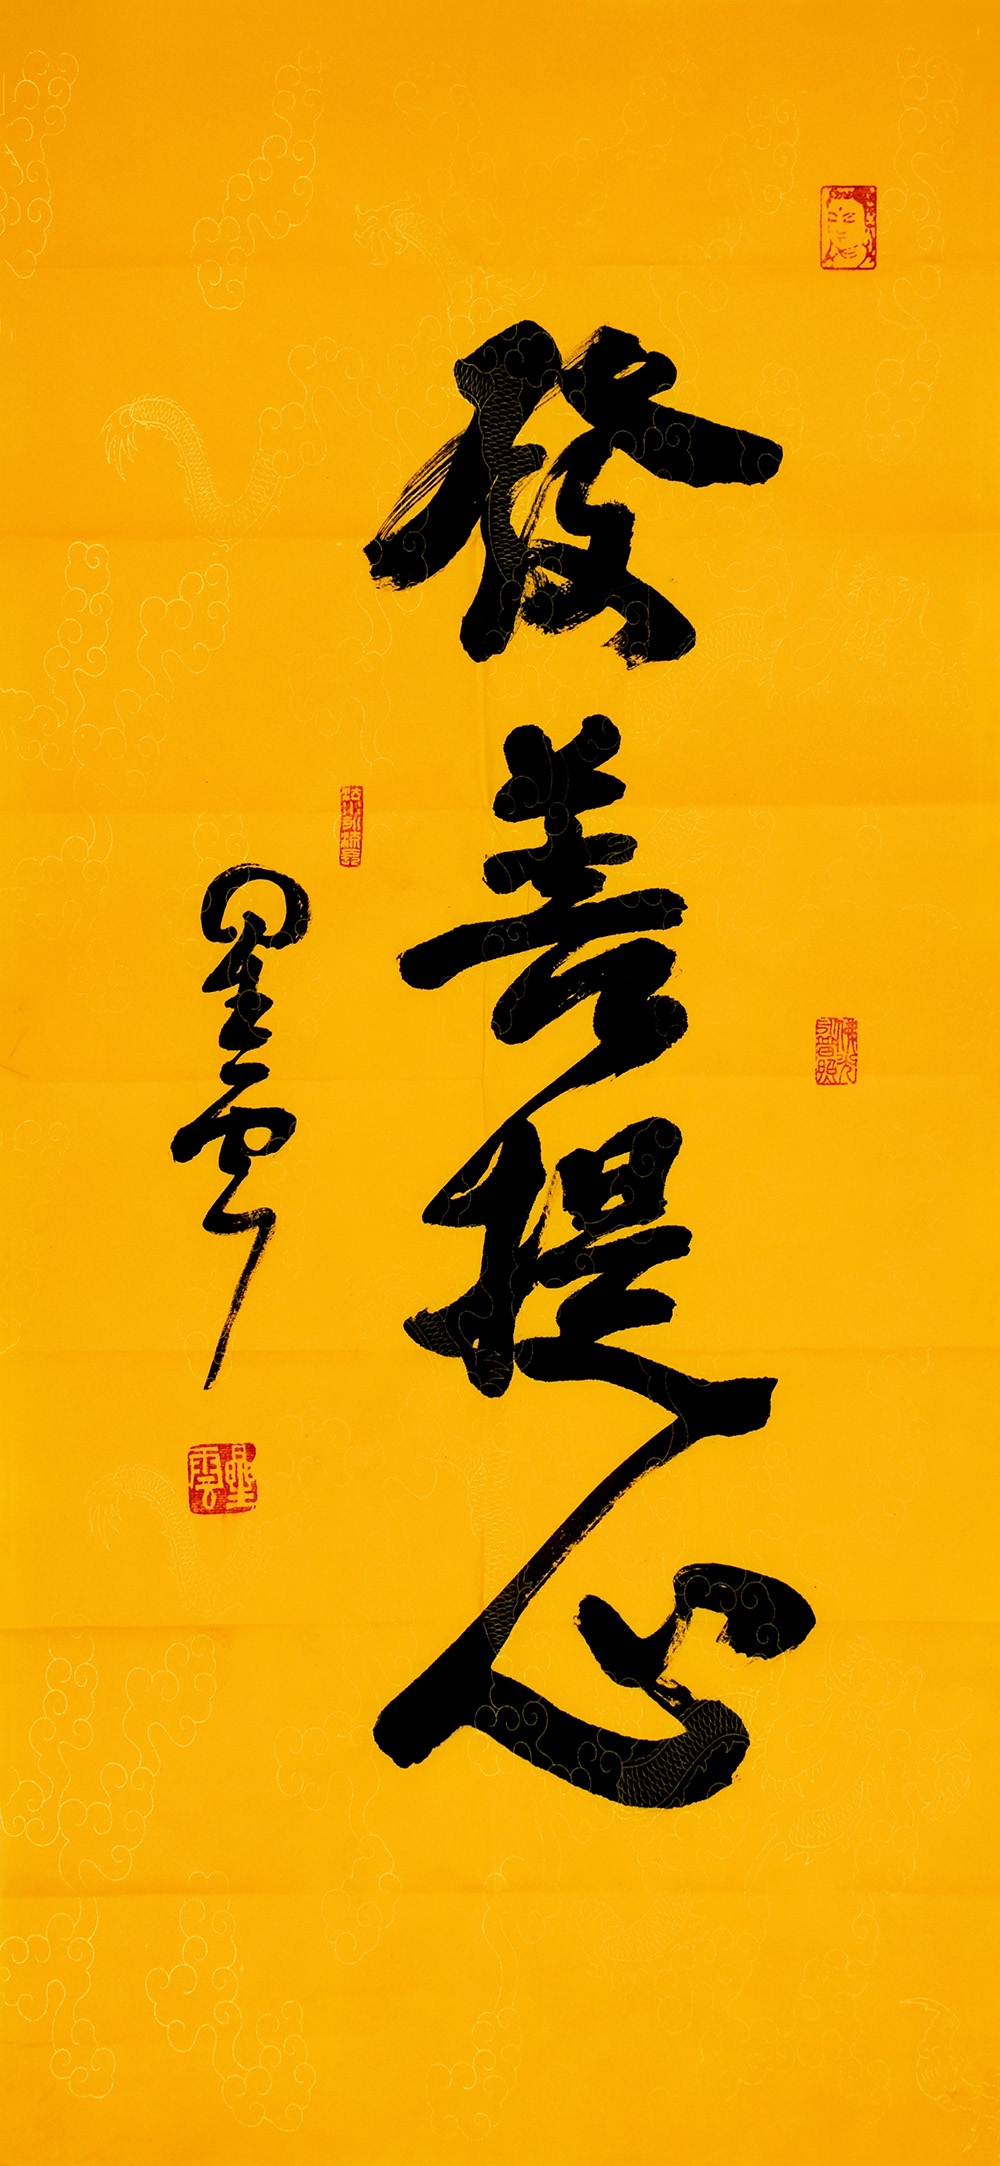 發菩提心
星雲
星雲